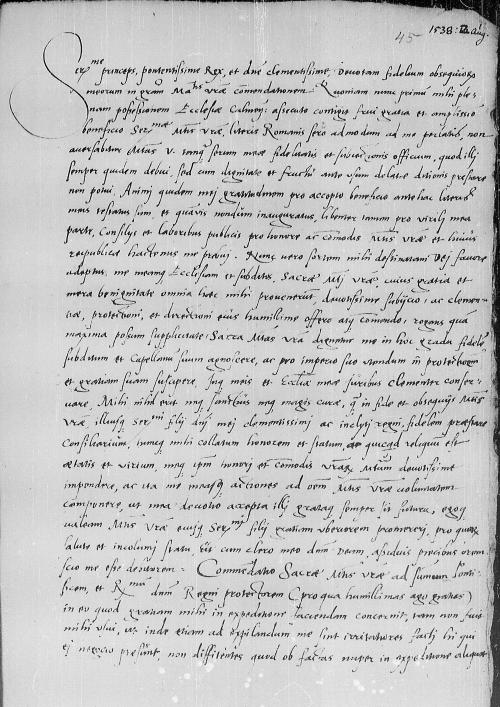 1538: 2 Aug.
45
Ser.me princeps, potentissime Rex, et dne clementissime: Devotam fidelium obsequiorum
meorum in gram Mtis vrae comendationem. Quoniam nunc primum mihi ple-
nam possessionem Ecclesiae Culmeñ assecuto contigit frui gratia et amplissimo
beneficio Ser.mae Mtis vrae, literis Romanis sero admodum ad me perlatis, non
aversabitur Mtas v. tanq serum meae fidelitatis et officium, quod illi
semper quidem debui, sed cum dignitate et fructu ante usum delatae ditionis prestare
non potui. Animi quidem mei gratitudinem pro accepto beneficio antehac literis
meis testatus sum, et quavis nondum inauguratus, libenter tamen pro virili mea
parte, Consilijs et laboribus publicis pro honore ac comodis Mtis vrae et huius
reipublicae hactenus me praeivi. Nunc vero sortem mihi destinatam Dei favore
adeptus, me meamq Ecclesiam et subditos, Sacrae Mti vrae, cuius gratia et
mera benignitate omnia haec mihi provenerunt, devotissime subijcio, ac clemen-
tiae, protectioni, et directioni eius humillime offero atq comendo, rogans quam
maxima possum supplicitate, Sacra Mtas vra dignetur me in hoc gradu fidelem
subditum et Capellanum suum agnoscere, ac pro imperio suo utendum in protectionem
et gratiam suam suscipere, Inq meis et Ecclesiae meae iuribus clementer conser-
vare. Mihi nihil erit neq sanctius neq magis curae, q in fide et obsequijs Mtis
vrae, illiusq Ser.mi filij dni mei clementissimi ac inclyti regni, fidelem praestare
Consiliarium, tuncq mihi collatum honorem et statum, ac quicqd reliquum est
aetatis et virium, meq ipm honori et comodis vrae Mtum devotissime
impendere, ac ita me measq actiones ad oem Mtis vrae voluntatem
componere, ut mea devotio accepta illi grataq semper sit futura, quoq
valeam Mtis vrae eiusq Ser.mi filij gratiam uberiorem promereri, pro quorum
salute et incolumi statu, cum clero meo dnm Deum, assiduis precibus orare
scio me esse debitorem. Commendatio Sacrae Mtis vrae ad summum Ponti-
ficem, et R.mum dnm Regni protectorem (pro qua humillimas ago gratias)
in eo quod gratiam mihi in expeditione faciendam concernit, tam non fuit
mihi usui, ut inde etiam ad expilandum me sint irritatiores facti hi qui
ei negocio presunt, non diffitentes quod ob factas nuper in expeditione aliquot